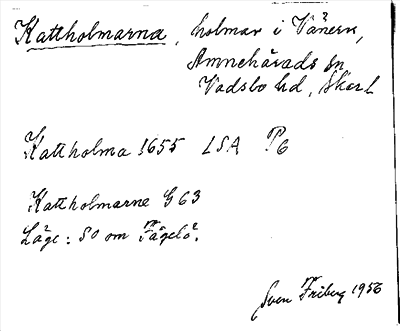 Kattholmarna, holmar i Vänern,
Amnehärads sn
Vadsbo hd, Skarl
Kattholma 1655 LSA P6
Kattholmarne G 63
Läge: SO om Fågelö.
Sven Friberg 1956